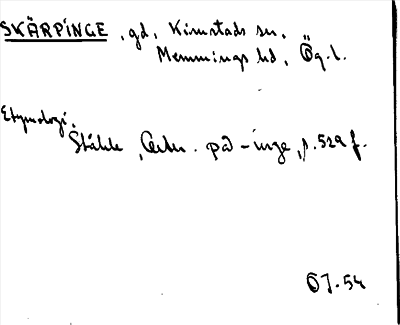 SKÄRPINGE, gd, Kimstads sn.
Memmings hd, Ög.l.
Etymologi.
Ståhle, på -inge, s. 529 f.
ÖJ. 54